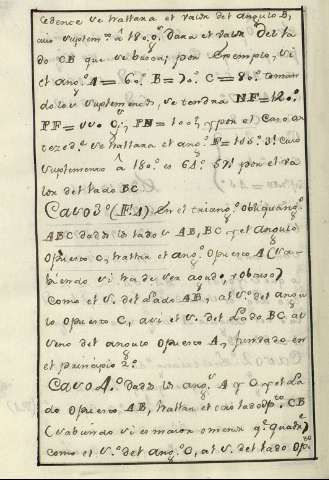 cedence se hallara el valor del angulo B,
cuio suplem.to â 180.º dara el valor del la
do CB que se busca; por Exemplo, si
el ang.º A=60.º B=70.º C=80.º toman
dolos suplementos, se tendrá NF=120.º
PF=110.º, PN=100.º, y por el Caso an
teced.te se hallara el ang.º F= cuio
suplemento â 180.º es 61.º 57.' por el va
lor del lado BC.
Caso 3.º (F. 1) En el triang.º obliquang.º
ABC dados los lados AB, BC y el angulo
Opuesto C, hallar el ang.º Opuesto A (sa
biendo si ha de ser agudo, ô obtuso)
Como el s. del Lado AB, al s.º del angu
lo Opuesto C, asi el s. del Lado BC al
seno del angulo Opuesto A, fundado en
el principio 2.º
Caso 4.º dados los ang.s A y C, y el La
do Opuesto AB, hallar el otro lado Op.to CB
(sabiendo si es maior ô menor q.e quadr.te)
como el s.º del ang.º C, al s. del lado Op.to